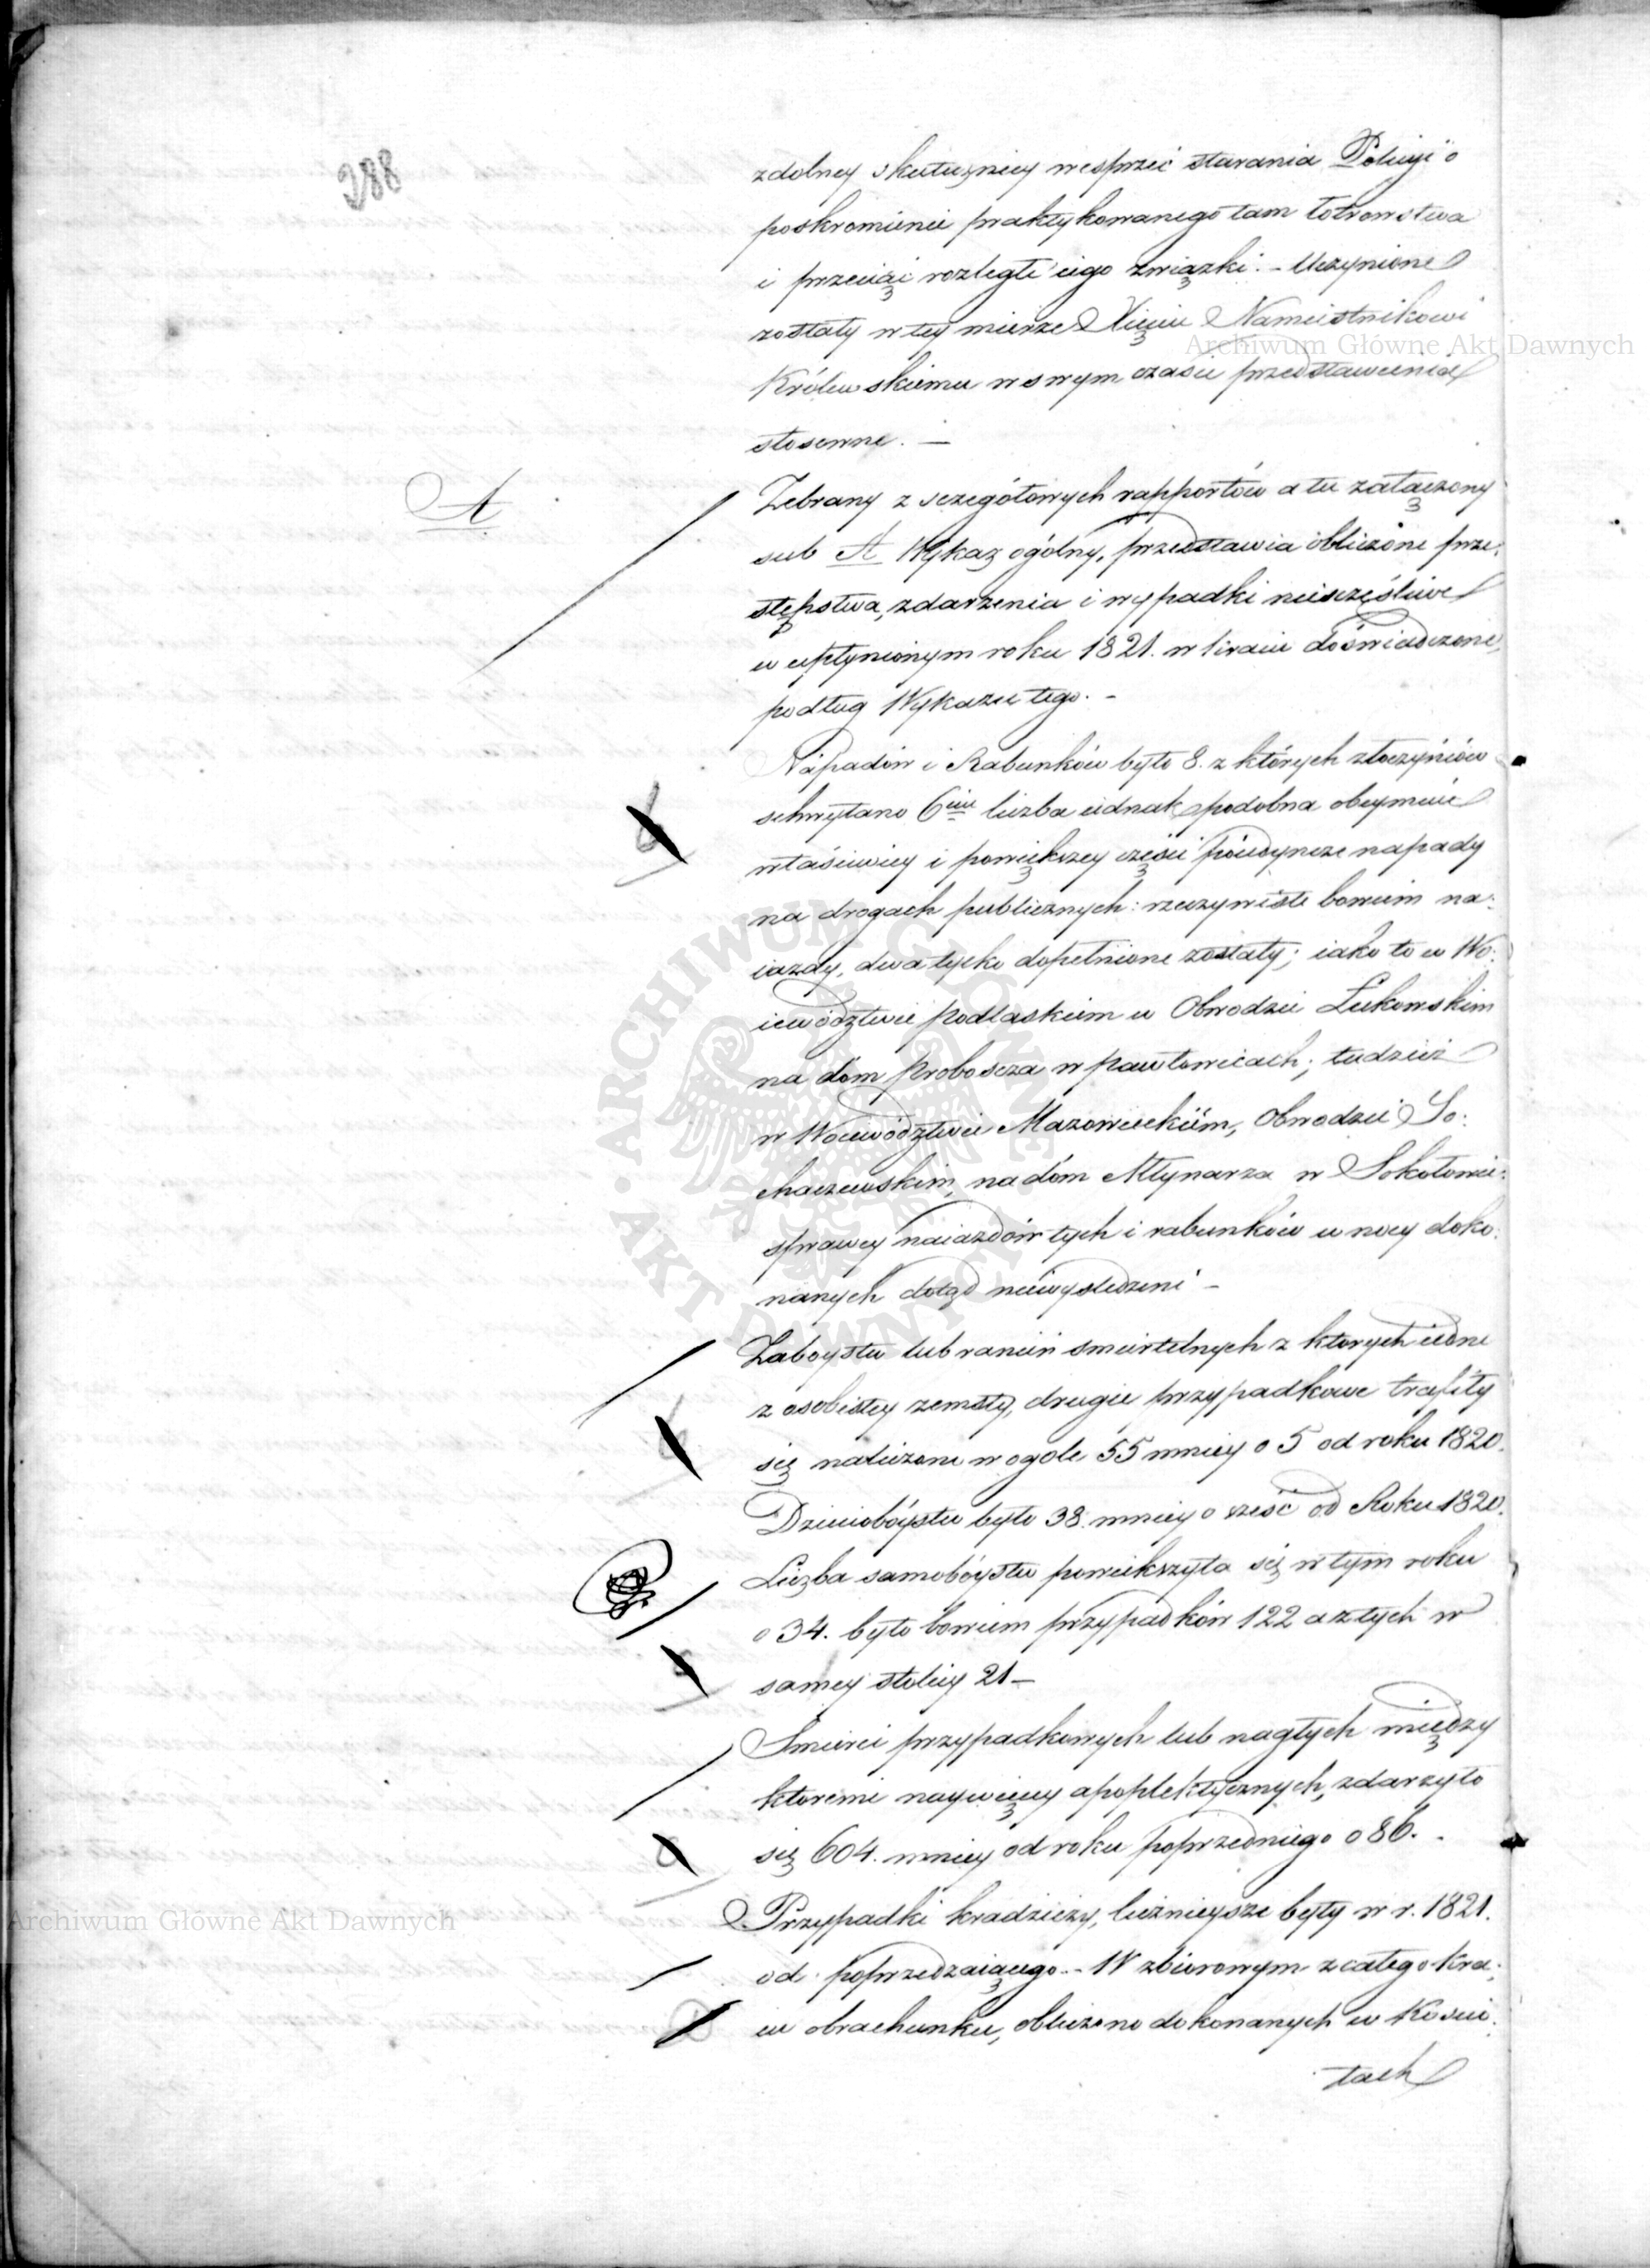 288
zdolney skuteczniey wesprzeć starania Policyi o
poskromienie praktykowanego tam łotrowstwa
i przeciąć rozległe iego związki. – Uczynione
zostały w tey mierze Xięciu Namiestnikowi
Królewskiemu w swym czasie przedstawienia
stosowne. —
A
Zebrany z sczegółowych rapportów a tu załączony
sub A Wykaz ogólny, przedstawia obliczone prze:
stępstwa, zdarzenia i wypadki nieszczęśliwe
w upłynionym roku 1821. w kraiu doświadczone,
podług Wykazu tego. –
Napadów i Rabunków było 8. z których złoczyńców
schwytano 6ciu liczba iednak podobna obeymuie
właściwiey i powiększey części poiedyncze napady
na drogach publicznych: rzeczywiste bowiem na:
iazdy, dwa tylko dopełnione zostały; iako to w Wo:
iewództwie podlaskiem w Obwodzie Łukowskim
na dóm proboscza w pawłowicach; tudzież
w Woiewództwie Mazowieckiém, Obwodzie So:
chaczewskim, na dóm Młynarza w Sokołowie:
sprawcy naiazdów tych i rabunków w nocy doko:
nanych dotąd niewysledzeni –
Zaboystw lub ranień smiertelnych z ktorych iedne
z osobistey zemsty, drugie przypadkowe trafiły
się naliczono w ogole 55 mniey o 5 od roku 1820.
Dzieciobóystw było 38. mniey o sześć od Roku 1820.
Liczba samobóystw powiekszyła się w tym roku
o 34. było bowiem przypadków 122 a z tych w
samey stolicy 21 –
Smierci przypadkowych lub nagłych między
ktoremi naywięcey apoplektycznych, zdarzyło
się 604. mniey od roku poprzedniego o 86. .
Przypadki kradzieży, licznieysze były w r. 1821.
od poprzedzaiącego. – W zbiorowym z całego Kra:
iu obrachunku, obliczono dokonanych w Kościo:
łach
Archiwum Główne Akt Dawnych
Archiwum Główne Akt Dawnych
ARCHIWUM GŁÓWNE AKT DAWNYCH